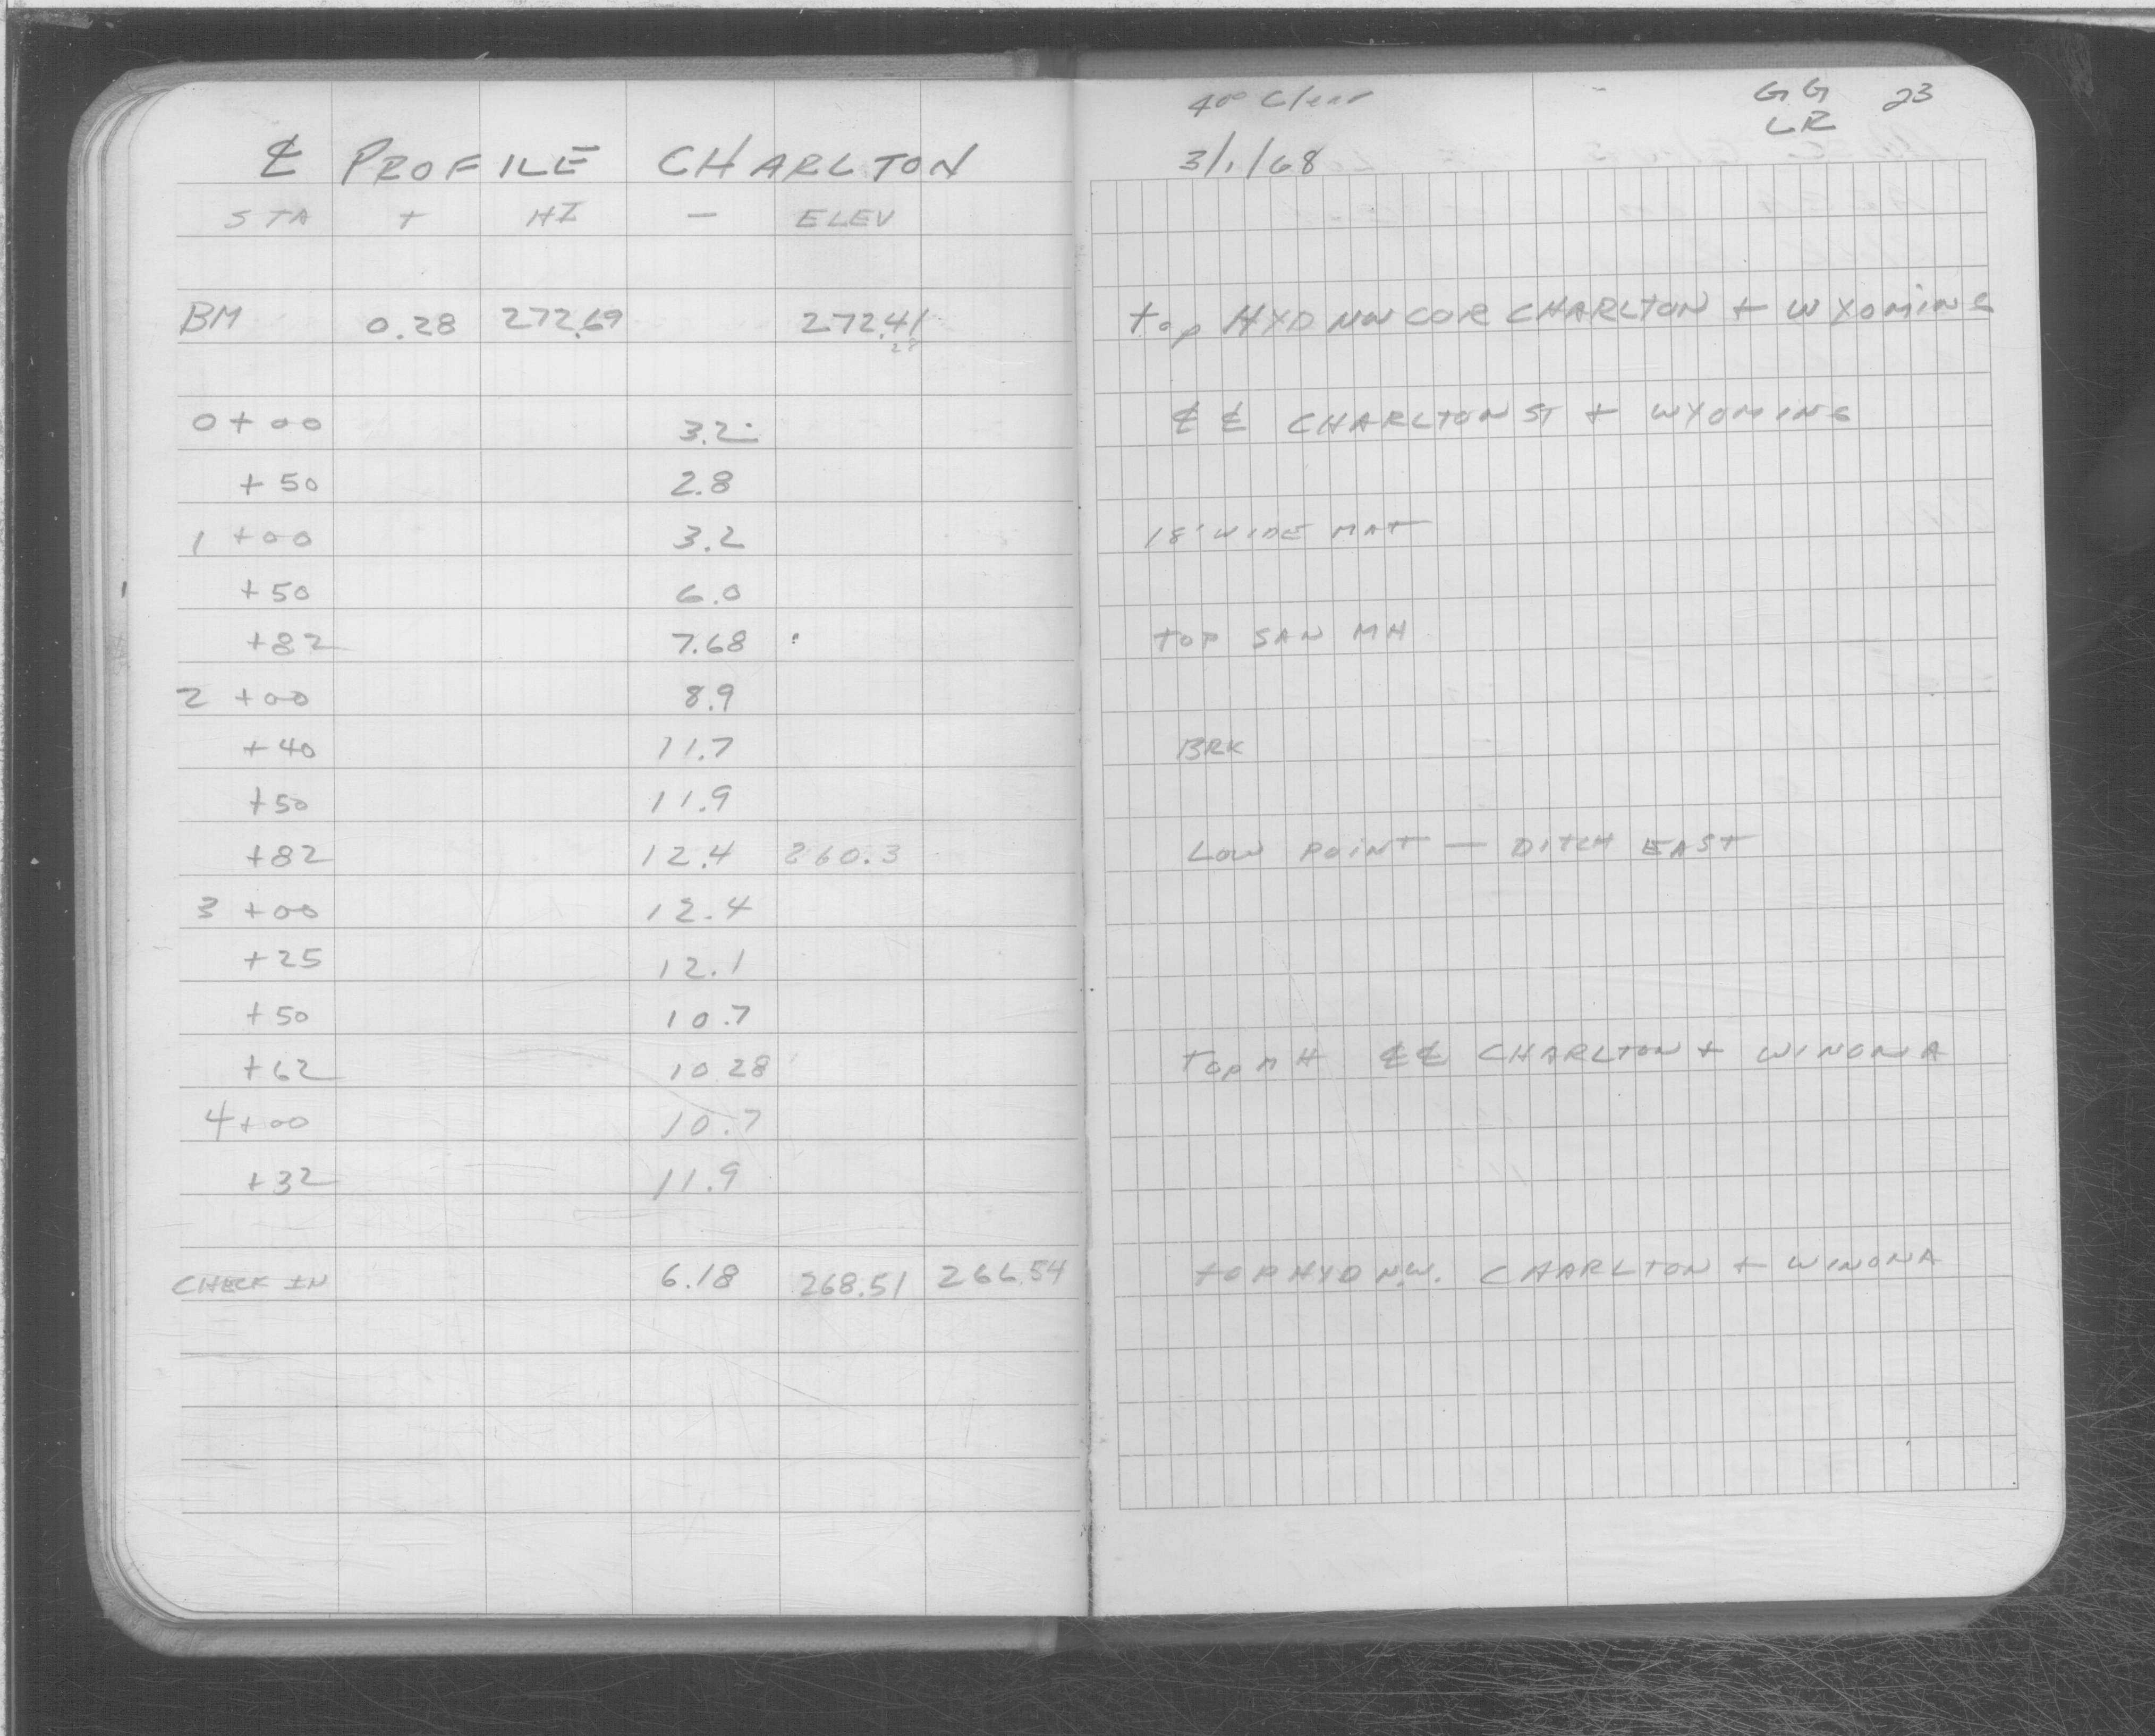 ℄ PROFILE CHARLTON
STA + HI — ELEV
BM 0.28 272.69 272.41
28
0+00 3.2
+50 2.8
1+00 3.2
+50 6.0
+82 7.68
2+00 8.9
+40 11.7
+50 11.9
+82 12.4 260.3
3+00 12.4
+25 12.1
+50 10.7
+62 10.28
4+00 10.7
+32 11.9
CHECK IN 6.18 268.51 266.54
40° Clear GG 23
LR
3/1/68
top HYD NW COR CHARLTON + WYOMING
℄ ℄ CHARLTON ST + WYOMING
18' WIDE MAT
TOP SAN MH
BRK
LOW POINT — DITCH EAST
TOP MH ℄℄ CHARLTON + WINONA
TOP HYD N.W. CHARLTON + WINONA